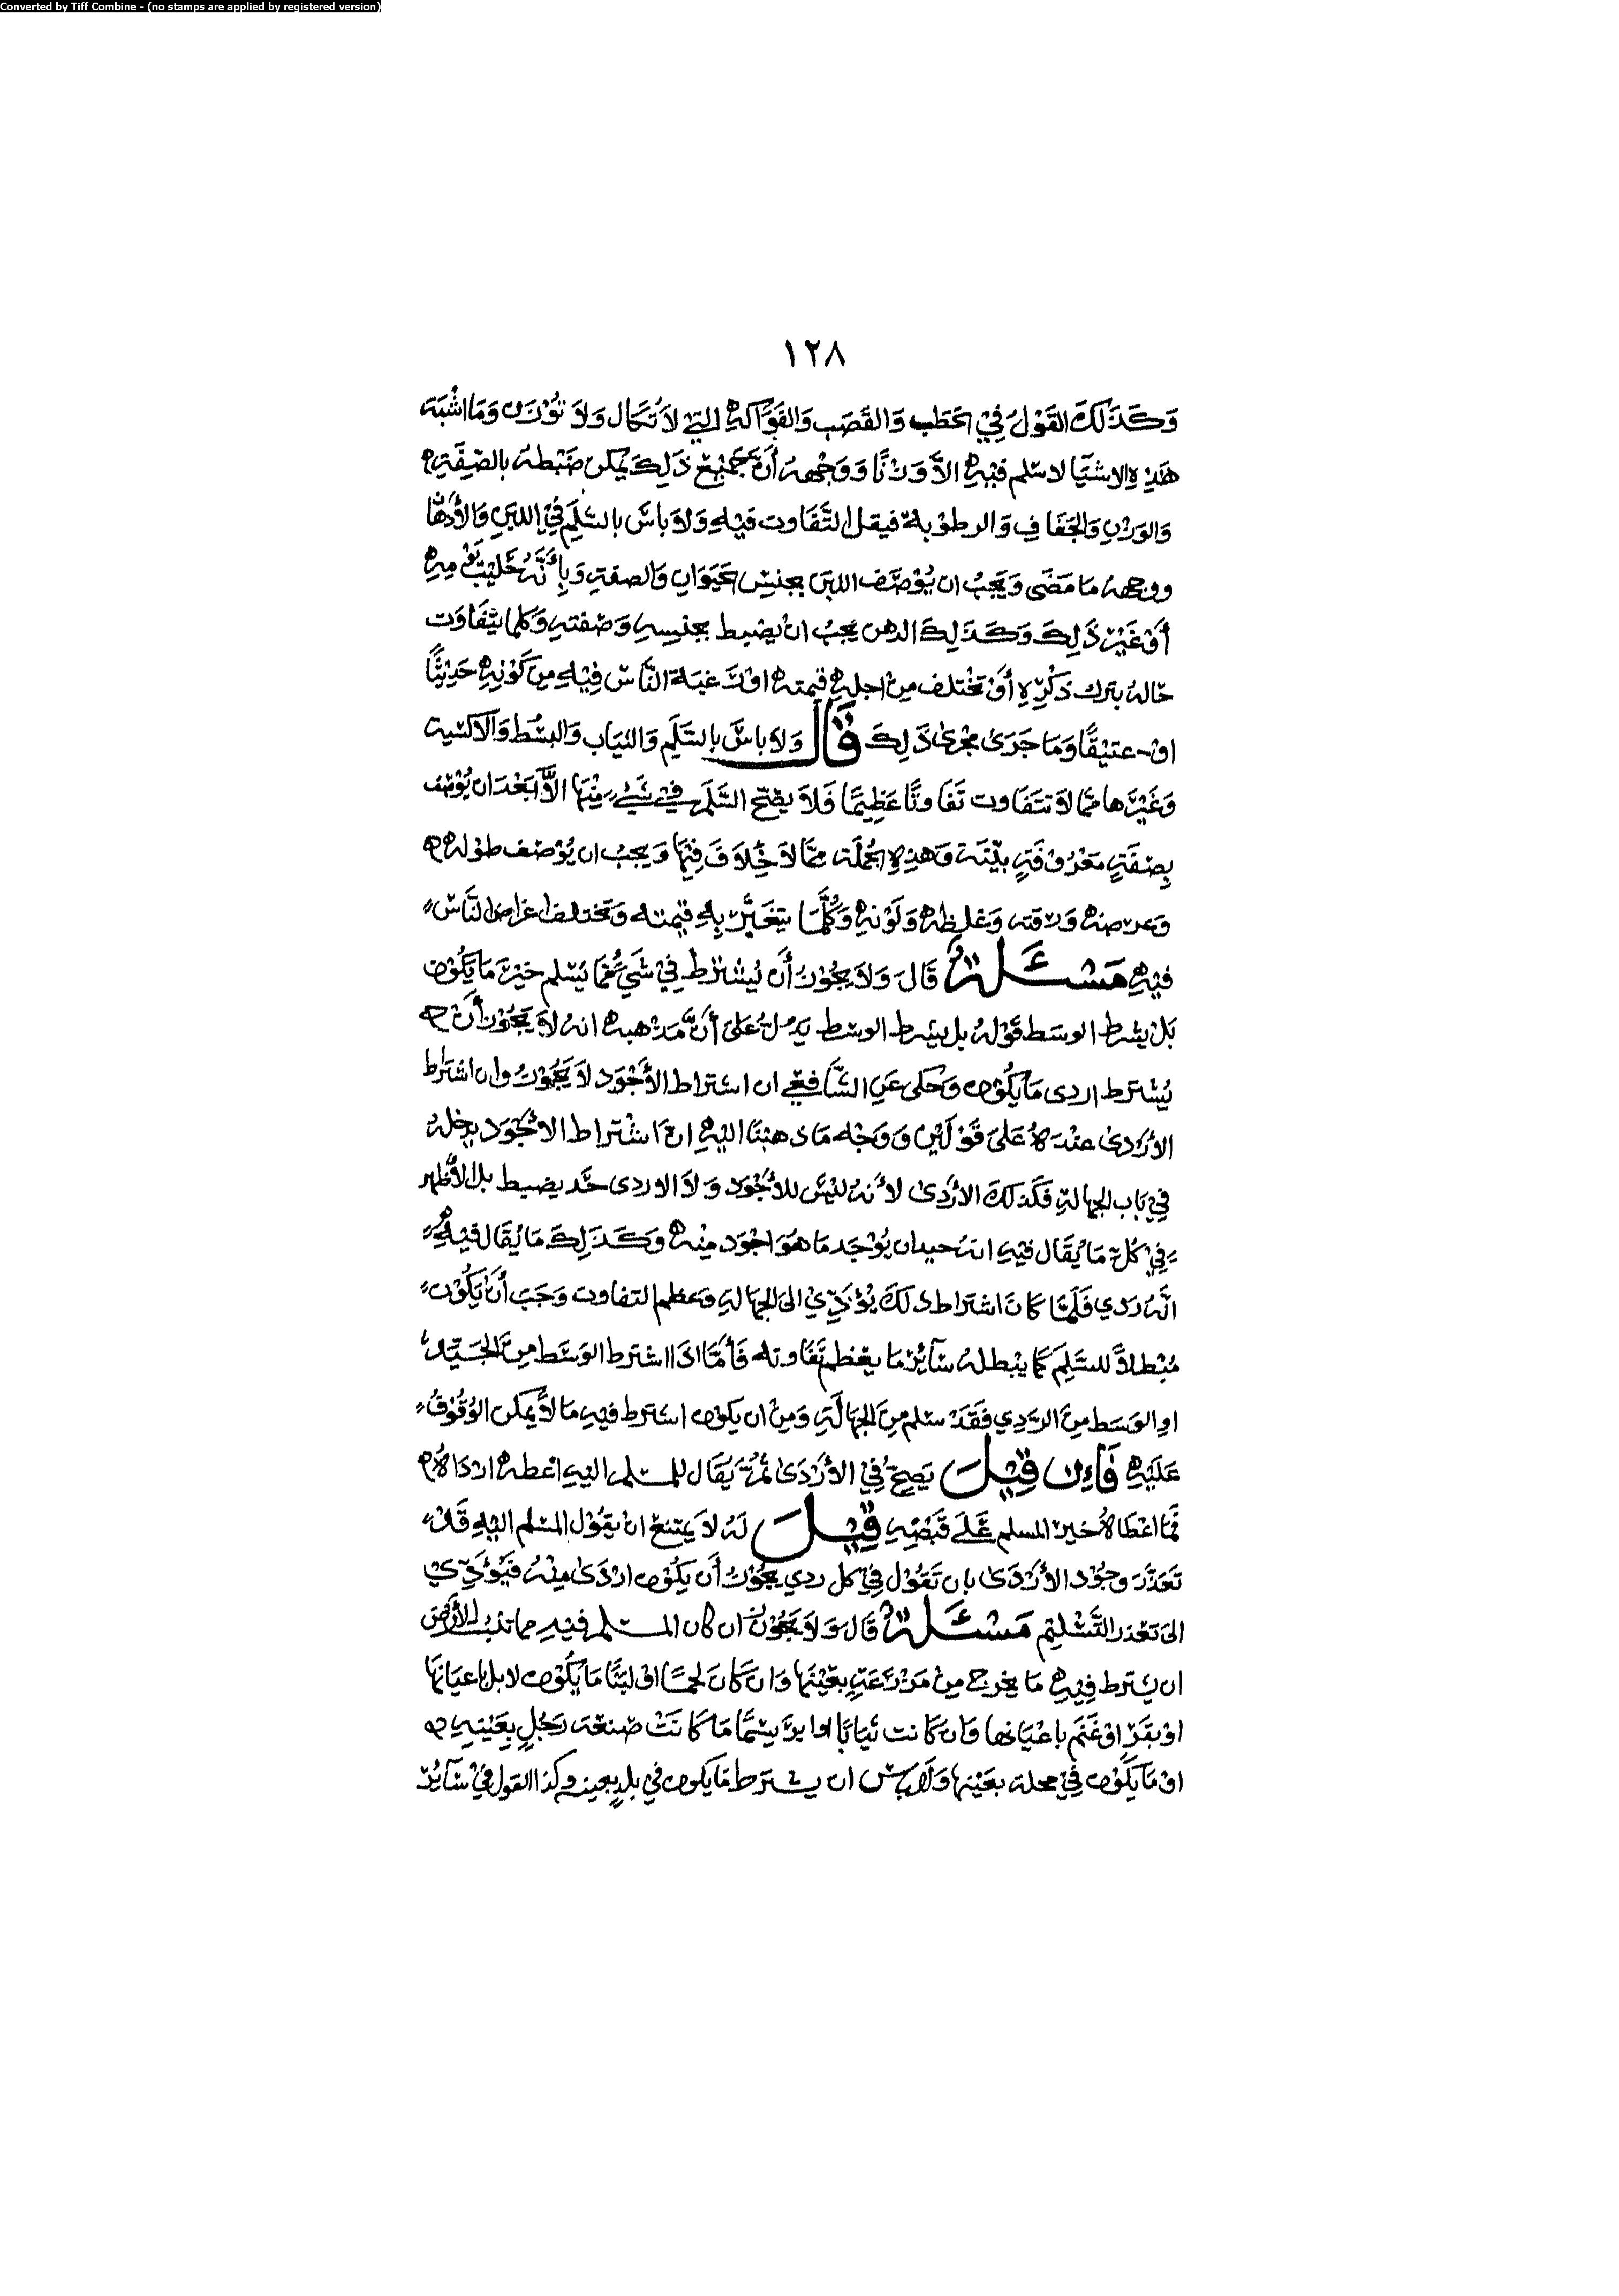 Converted by Tiff Combine - (no stamps are applied by registered version)
١٢٨
وَكَذَلكَ القَوْلُ فِيْ الحَطَب وَالقَصَب وَالفَوَاكهِ التِيْ لاَ تُكَال وَلاَ تُوْزَن وَمَا اشْبَهَ
هَذِهِ الاشيَآ لا سلم فيْهِ الاَّ وَزْنًا وَوَجْههُ أنَّ جَمْيْعَ ذَلِكَ يمكن ضَبْطهُ بالصِّفَةِ
وَالوَزْنِ وَالجَفَافِ وَالرطُوْبةِ فيقل التَّفَاوت فيْهِ وَلاَ بَاسَ بالسَّلَمِ فِيْ اللبَنِ وَالأدْهَان
ووجههُ مَا مَضَى وَيَجبُ ان يُوْصَف اللبن بجنس الحَيَوَان وَالصفةِ وَبِأنَّهُ حَلِيْبُ يَوْمِهِ
أوْ غَيْر ذَلِكَ وَكَذَلِكَ الدهن يجبُ انْ يضبط بجنسِهِ وَصفتهِ وَكلما يتَفَاوَت
حَالهُ بتركِ ذكْرِهِ أوْ تَخْتلف مِنْ اجلهِ قيمتهِ اوْ رَغبَة النَّاسِ فِيْهِ مِن كَوْنِهِ حَدِيْثًا
اوْ عتيْقًا وَمَا جَرَى مَجْرَى ذَلِكَ قَالَ وَلاَ باسَ بالسَّلَمِ وَالثيَاب وَالبسُط وَالاَكسية
وَغَيْرهَا ممّا لاَ تتَفَاوت تَفَاوتًا عَظِيمًا فَلاَ يصِحّ السَّلَم فِيْ شَيْءٍ مِنْهَا الاَّ بَعْدَ ان يُوْصَف
بِصفَةٍ مَعْرُوْفَةٍ بيِّنَة وَهَذِهِ الجُملَة ممَّا لاَ خِلاَفَ فِيْهَا وَيجبُ ان يُوْصَف طوْلهِ
وَعرضهِ وَرقته وَغلظهِ وَلَوْنهِ وَكُلَّمَا يتغَيَّر بِهِ قيْمته وَتَختلف اغراض النَّاس
فيْهِ مَسْئَلَةٌ قَالَ وَلاَ يجُوْزُ أَن يُشْتَرَط فِيْ شَيْءٍ مَّا يُسْلم خيْرَ مَا يَكُوْن
بَلْ يشْرط الوسَط قَوْلهُ بل يشرط الوسَط يدلُ عَلَى أَنَّ مَذهبهِ انهُ لاَ يَجُوْزُ أَنْ
يُشْترط اردى مَا يكُوْن وَحُكى عَنِ الشَّافِعِي ان اشتراط الأَجْوَد لاَ يَجُوْز وان اشْترَاط
الأَرْدى عنْدَهُ عَلَى قَوْلَيْن وَوَجْه مَا ذهبْنَا اليهِ انَّ اشْتراط الأَجْوَد يدخلهُ
فِيْ بَاب الجهَالَةِ فَكَذلكَ الأَرْدَى لأَنهُ ليْسَ للأَجْوَد وَلاَ الاردى حَد يضبط بل الأَظهر
فِيْ كُلِّ مَا يُقَال فيْهِ انهُ جيد ان يُوْجَد مَا هُوَ اجْوَد مِنْهُ وَكَذَلِكَ مَا يُقَال فيْهِ
انَّهُ رَدي فَلَمَّا كَانَ اشتراط ذلكَ يُؤَدِّيْ الى الجهَالةِ وَعظم التفاوت وَجَبَ أَنْ يَكُوْن
مُبْطلاً للسَّلَمِ كمَا يبْطلهُ سَآئر مَا يَعْظم تَفَاوته فَأَمَّا اذَا اشترط الوَسَط مِنَ الجَيِّد
او الوَسَط مِنَ الرَدي فَقَدْ سَلم مِنَ الجهَالَةِ وَمِنْ ان يكوْن اشترط فيهِ مَا لاَ يمكن الوُقُوْفُ
عَلَيْهِ فَاءِن قِيْلَ يَصِحُ فِيْ الأَرْدَى ثُمَّ يَقَال للمسلم اليهِ اعْطهِ ارْدَاهُ
فمَا اعْطَاهُ خير المسلم عَلَى قَبْضِهِ قِيْلَ لَهُ لاَ يمتنع انْ يقوْل المسْلم اليْهِ قَدْ
تعَذَّرَ وجُوْد الأَرْدَى بان تَقُوْل فِيْ كل ردي يجُوْزُ أَن يكُوْن ارْدَى مِنْهُ فَيُؤَدِّيْ
الى تعذر التَّسْليْم مَسْئَلَةٌ قَالَ وَلاَ يَجُوْز ان كان المسلم فيهِ مما تنبت الأَرْض
ان يشترط فِيْهِ مَا يخرج مِنْ مَزْرَعَةٍ بعَيْنهَا وَان كَانَ لحمًا اوْ لبنًا مَا يكُوْن لابل باعيَانهَا
اوْ بقَر اوْ غَنَم باعْيَانهَا وَان كَانت ثيَابًا اوا بريسَمًا مَا كَانَتْ صَنعَة رَجُلٍ بعَيْنهِ
اوْ مَا يكُوْن فِيْ محلة بعَيْنهَا وَلاَ بَاس ان يشترط مَا يكون في بلدٍ بعينه وكذا القول فيْ سَآئر